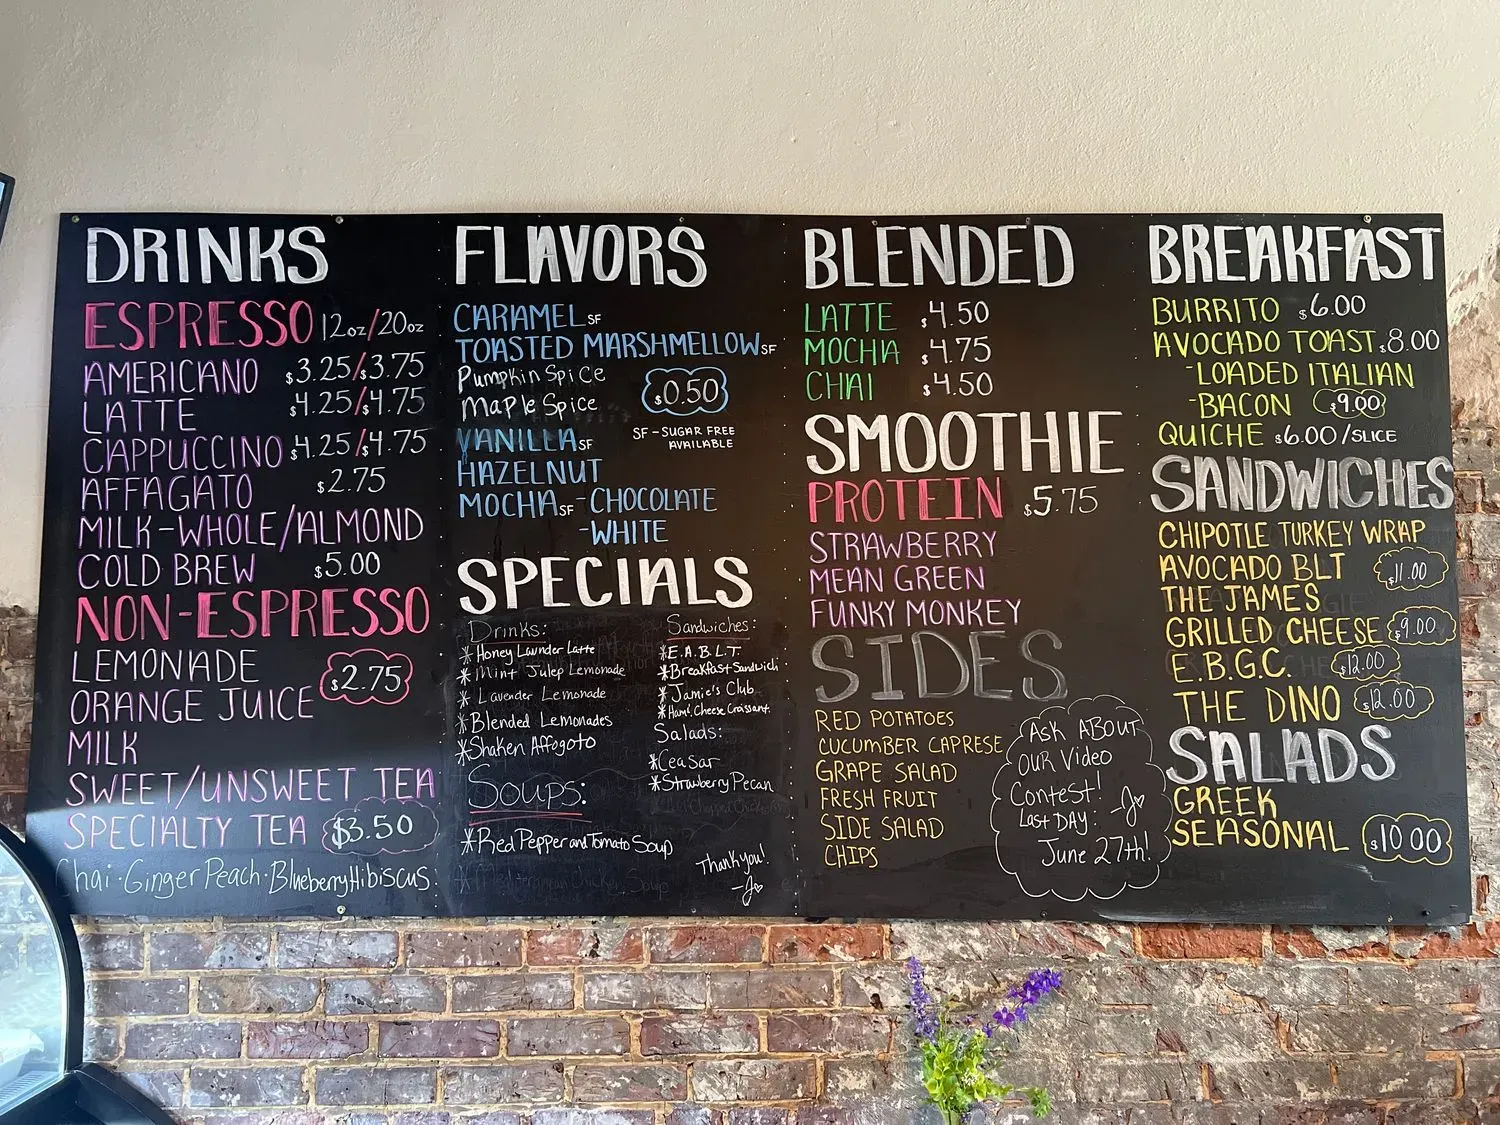 DRINKS
ESPRESSO 12oz/20oz
AMERICANO $3.25/$3.75
LATTE $4.25/$4.75
CAPPUCCINO $4.25/$4.75
AFFAGATO $2.75
MILK-WHOLE/ALMOND
COLD BREW $5.00
NON-ESPRESSO
LEMONADE
$2.75
ORANGE JUICE
MILK
SWEET/UNSWEET TEA
SPECIALTY TEA $3.50
Chai·Ginger Peach·Blueberry Hibiscus
FLAVORS
CARAMEL SF
TOASTED MARSHMELLOW SF
Pumpkin Spice
$0.50
Maple Spice
VANILLA SF
SF-SUGAR FREE
AVAILABLE
HAZELNUT
MOCHA SF -CHOCOLATE
-WHITE
SPECIALS
Drinks:
*Honey Lavnder Latte
*Mint Julep Lemonade
*Lavender Lemonade
*Blended Lemonades
*Shaken Affogoto
Sandwiches:
*E.A.B.L.T
*Breakfast Sandwich
*Jamie's Club
*Ham & Cheese Croissant
Salads:
*Ceasar
*Strawberry Pecan
Soups:
*Red Pepper and Tomato Soup
Thank you!
-J
BLENDED
LATTE $4.50
MOCHA $4.75
CHAI $4.50
SMOOTHIE
PROTEIN $5.75
STRAWBERRY
MEAN GREEN
FUNKY MONKEY
SIDES
RED POTATOES
CUCUMBER CAPRESE
GRAPE SALAD
FRESH FRUIT
SIDE SALAD
CHIPS
ASK ABOUT
OUR Video
Contest! -J
Last DAY:
June 27th!
BREAKFAST
BURRITO $6.00
AVOCADO TOAST $8.00
-LOADED ITALIAN
-BACON $9.00
QUICHE $6.00/SLICE
SANDWICHES
CHIPOTLE TURKEY WRAP
AVOCADO BLT $11.00
THE JAMES
GRILLED CHEESE $9.00
E.B.G.C. $12.00
THE DINO $12.00
SALADS
GREEK
SEASONAL $10.00